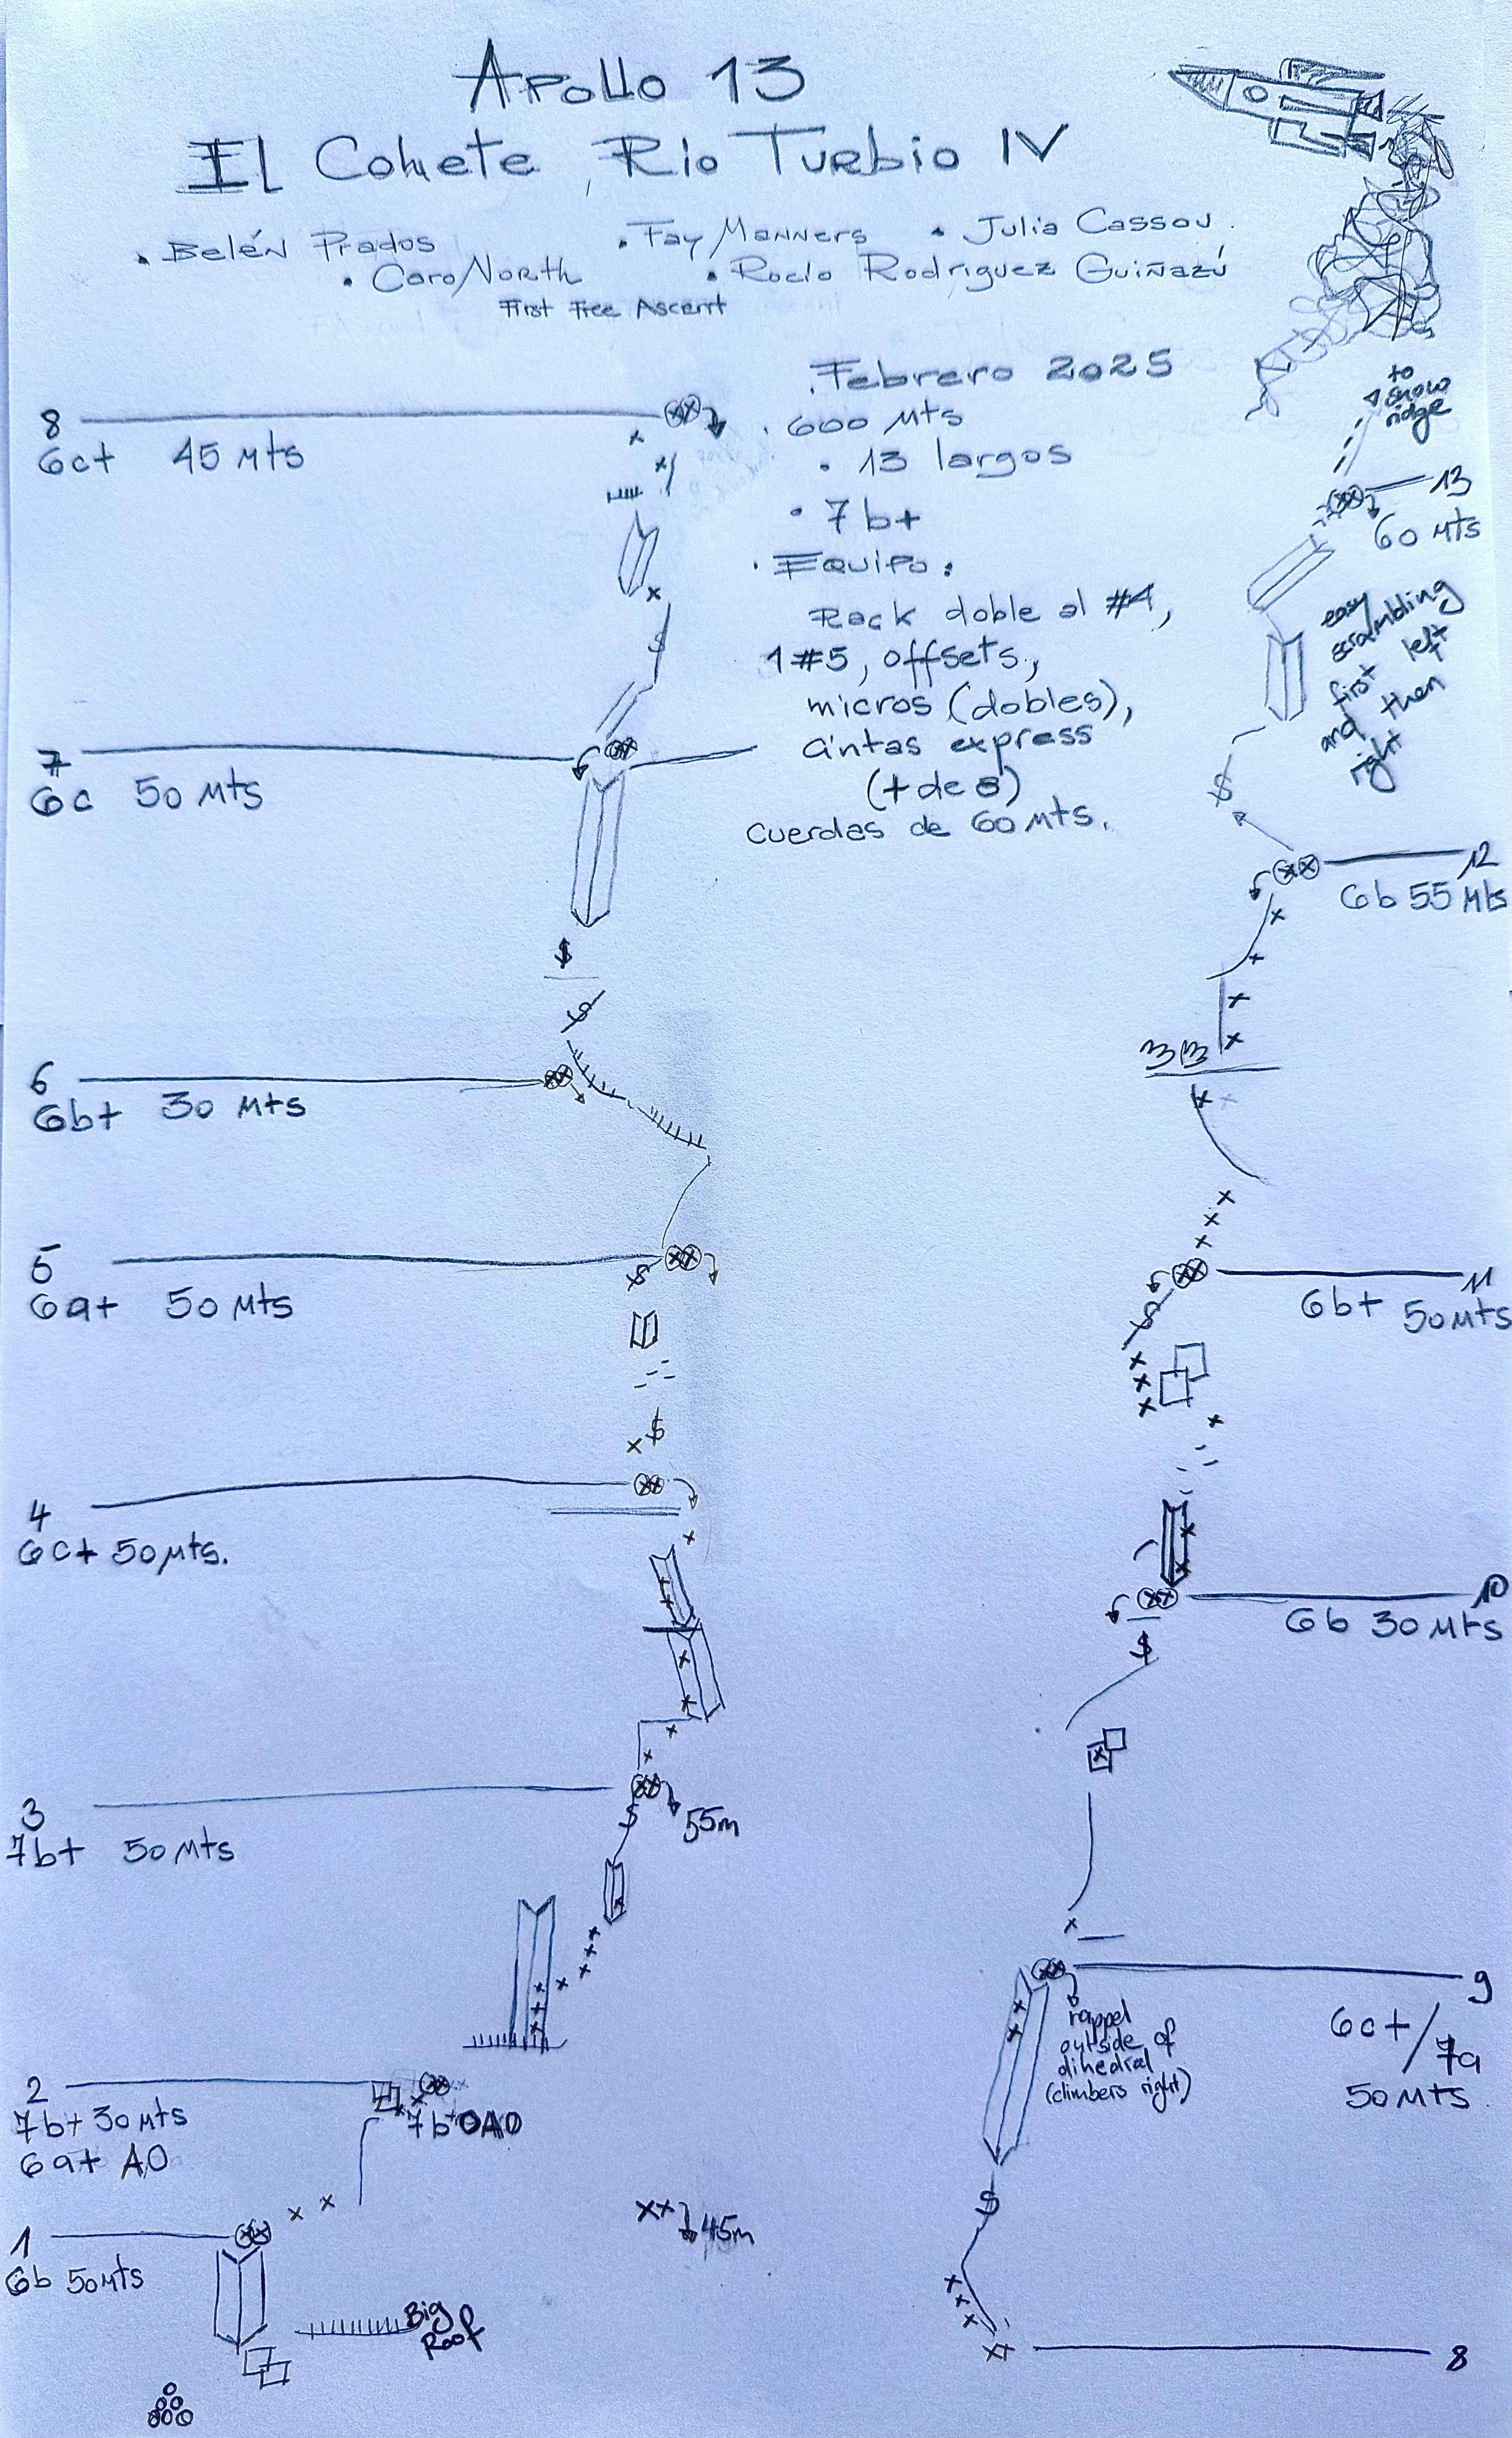 Apollo 13
El Cohete, Río Turbio IV
• Belén Prados • Fay Manners • Julia Cassou.
• Caro North • Rocío Rodriguez Guiñazú
First Free Ascent
. Febrero 2025
. 600 Mts
• 13 largos
• 7b+
• Equipo:
Rack doble al #4,
1#5, offsets,
micros (dobles),
cintas express
(+ de 8)
cuerdas de 60 Mts.
8
6c+ 45 Mts
7
6c 50 Mts
6
6b+ 30 Mts
5
6a+ 50 Mts
4
6c+ 50 Mts.
3
7b+ 50 Mts
55m
2
7b+ 30 Mts
6a+ A0
7b+ O A0
1
6b 50Mts
45m
Big
Roof
to
snow
ridge
13
60 Mts
easy
scrambling
first left
and then
right
12
6b 55 Mts
11
6b+ 50Mts
10
6b 30 Mts
9
6c+/7a
50 Mts.
rappel
outside of
dihedral
(climbers right)
8